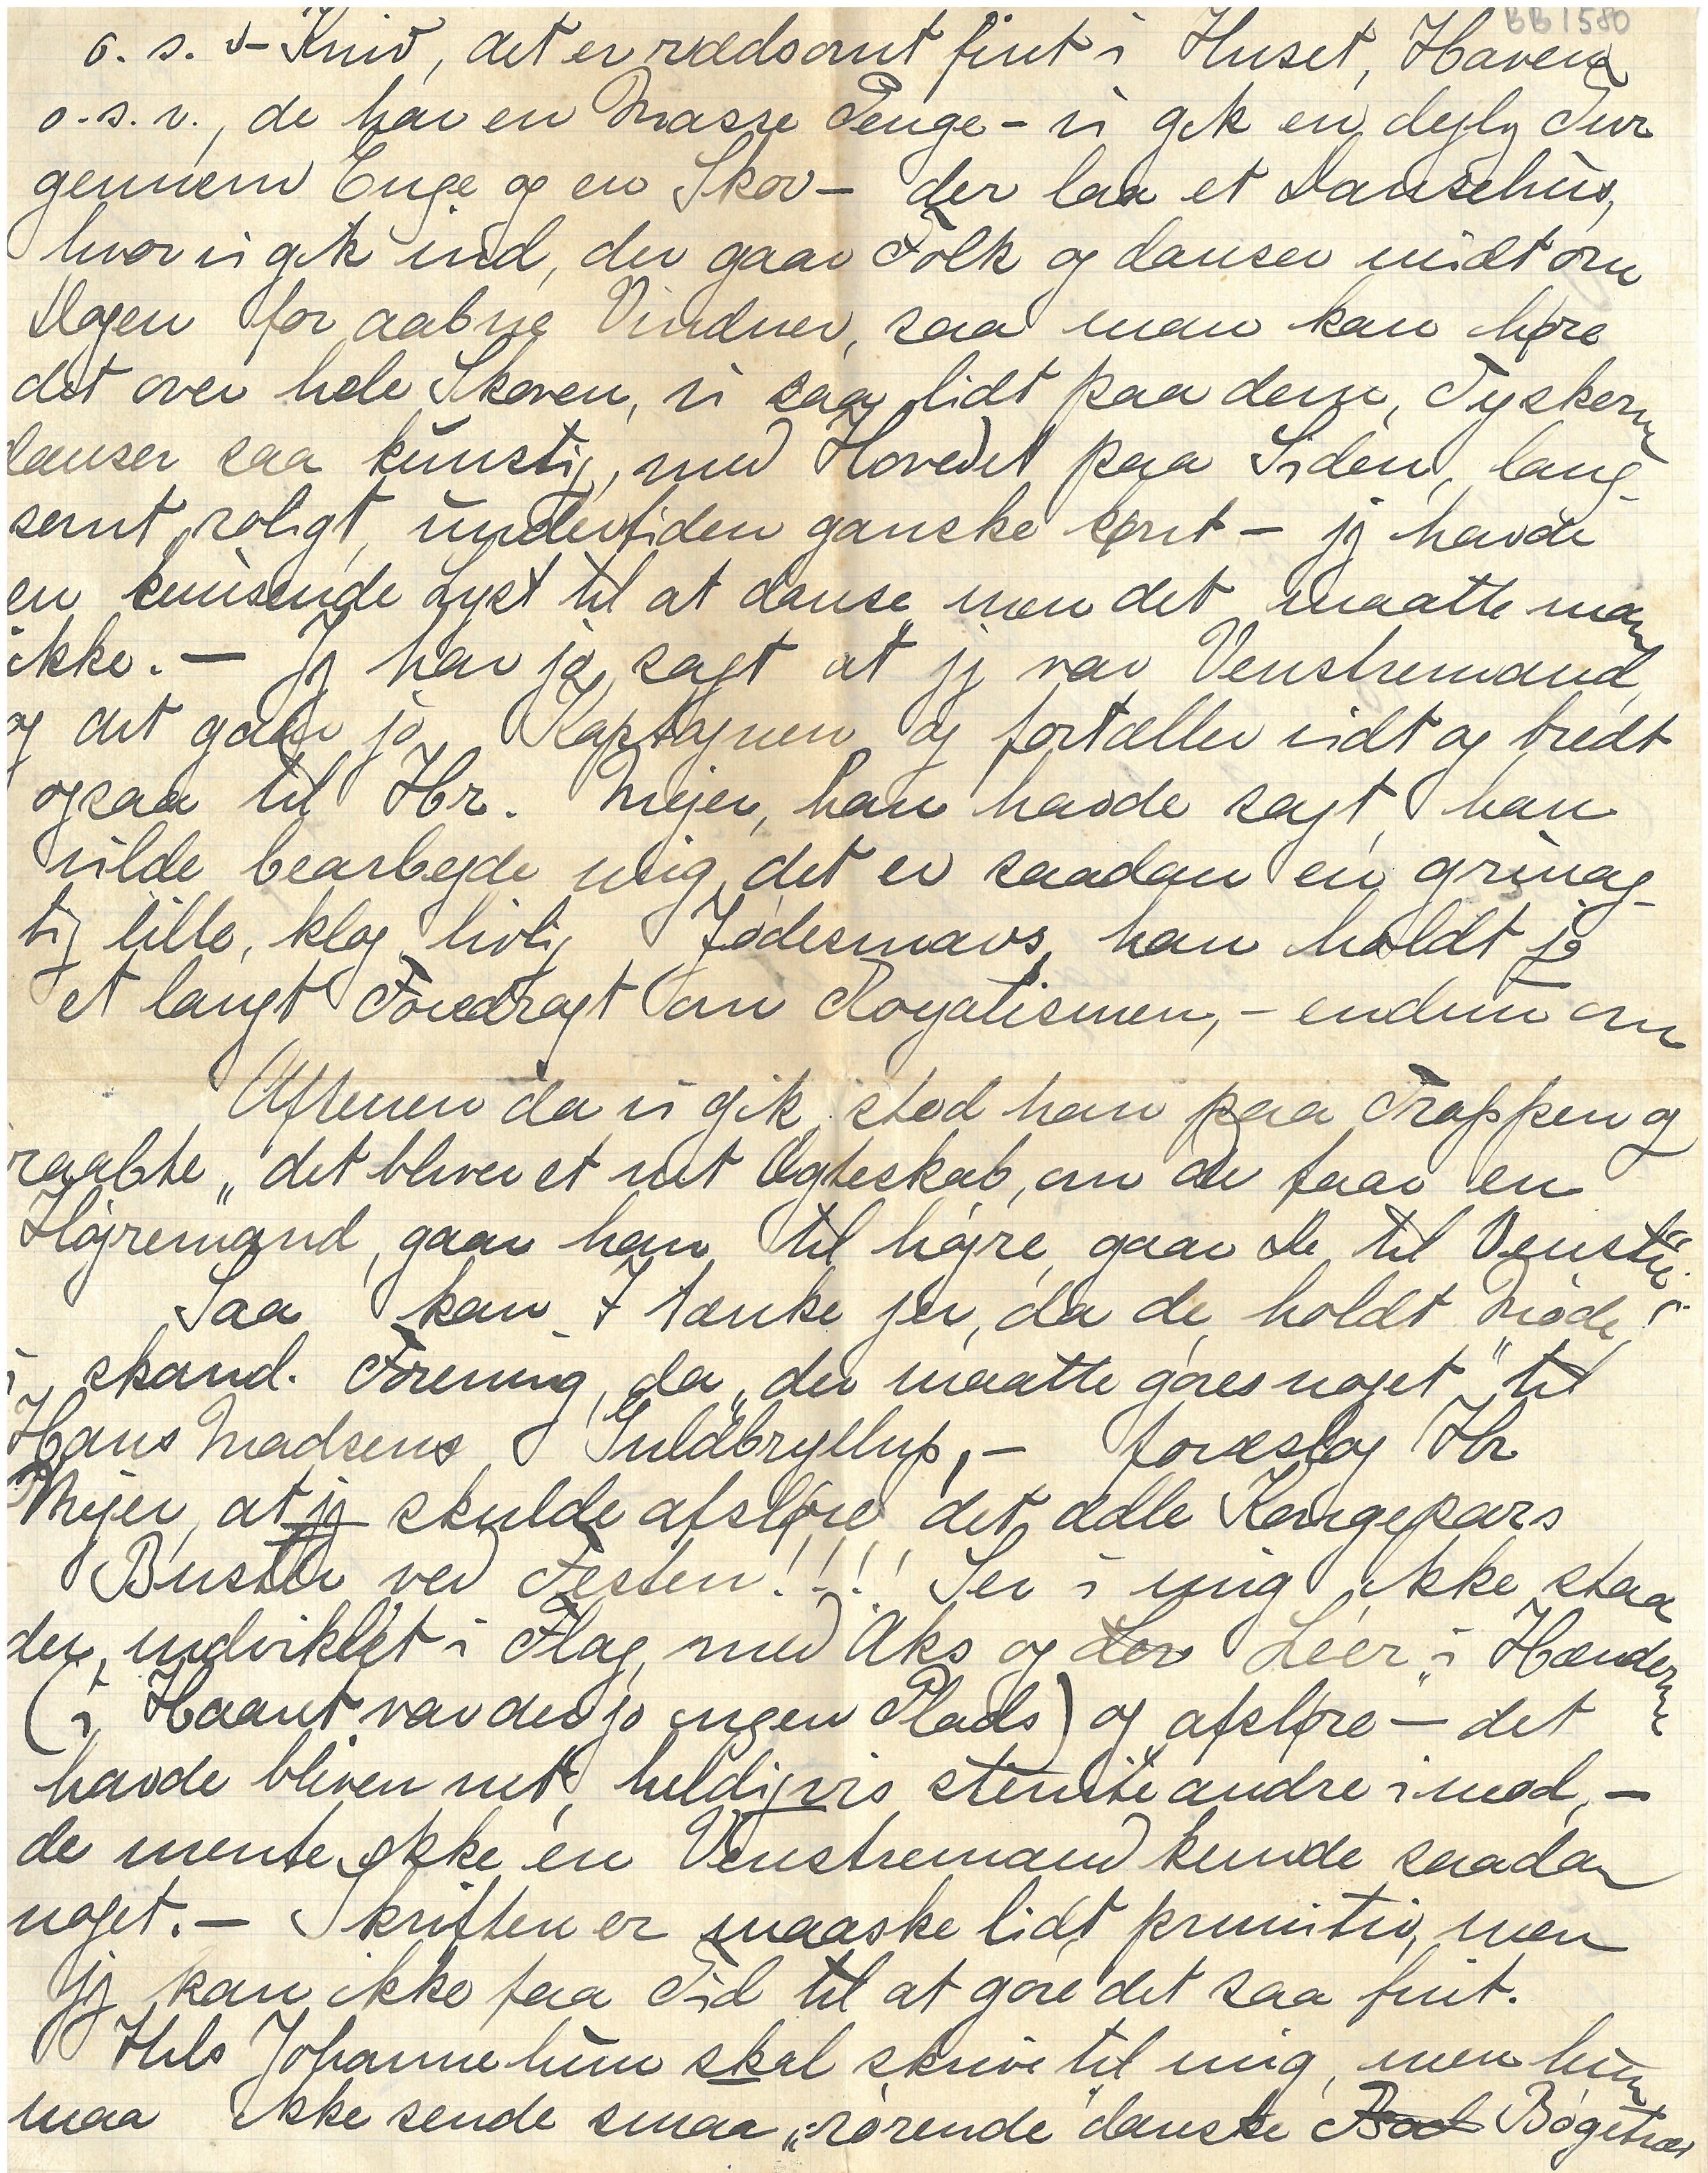 BB1580
o. s. v - Kniv, det er rædsomt fint i Huset, Haven
o.s.v., de har en Masse Penge - vi gik en dejlig Tur
gennem Enge og en Skov - der laa et Dansehus,
hvor vi gik ind, der gaar Folk og danser midt om
Dagen for aabne Vinduer, saa man kan høre
det over hele Skoven, vi saa lidt paa dem, Tyskerne
danser saa kunstig, med Hovedet paa Siden, lang-
somt, roligt, undertiden ganske kønt - jeg havde
en susende Lyst til at danse, men det maatte man
ikke. - Jeg har jo sagt at jeg var Venstremand,
og det gaar jo Kaptajnen og fortæller vidt og bredt
ogsaa til Hr. Mejer, han havde sagt, han
vilde bearbejde mig, det er saadan en grinag-
tig lille, klog livlig Jødesmavs, han holdt jo
et langt Foredragt om Royalismen, - endnu om
Aftenen da vi gik stod han paa Trappen og
raabte „det bliver et net Ægteskab, om De faar en
Højremand, gaar han til højre, gaar De til Venstre".
Saa kan I tænke jer, da de holdt Møde
i skand. Forening, da „der maatte gøres noget" til
Hans Madsens Guldbryllup, - foreslog Hr
Mejer, at jeg skulde afsløre det ædle Kongepars
Buster ved Festen!!!! Ser i mig ikke staa
der, indviklet i Flag, med Aks og Leer i Hænderne
(i Haaret var der jo ingen Plads) og afsløre - det
havde bleven net, heldigvis stemte andre imod, -
de mente ikke en Venstremand kunde saadan
noget. - Skriften er maaske lidt primitiv, men
jeg kan ikke faa Tid til at gøre det saa fint.
Hils Johanne hun skal skrive til mig, men hun
maa ikke sende smaa „rørende" danske Bøgetræs